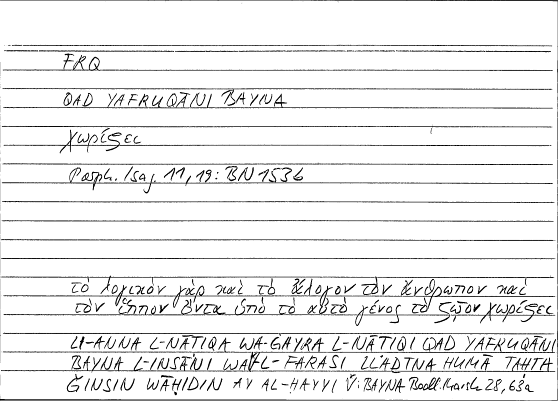 FRQ
QAD YAFRUQĀNI BAYNA
χωρίζει
Porph. Isag. 11, 19: BN 153b
τὸ λογικὸν γὰρ καὶ τὸ ἄλογον τὸν ἄνθρωπον καὶ
τὸν ἵππον ὄντα ὑπὸ τὸ αὐτὸ γένος τὸ ζῷον χωρίζει
LI-ANNA L-NĀṬIQA WA-ĠAYRA L-NĀṬIQI QAD YAFRUQĀNI
BAYNA L-INSĀNI WA L-FARASI LLADĪNA HUMĀ TAḤTA
ĞINSIN WĀḤIDIN AY AL-ḤAYYI V: BAYNA Bodl. Marsh 28, 63a